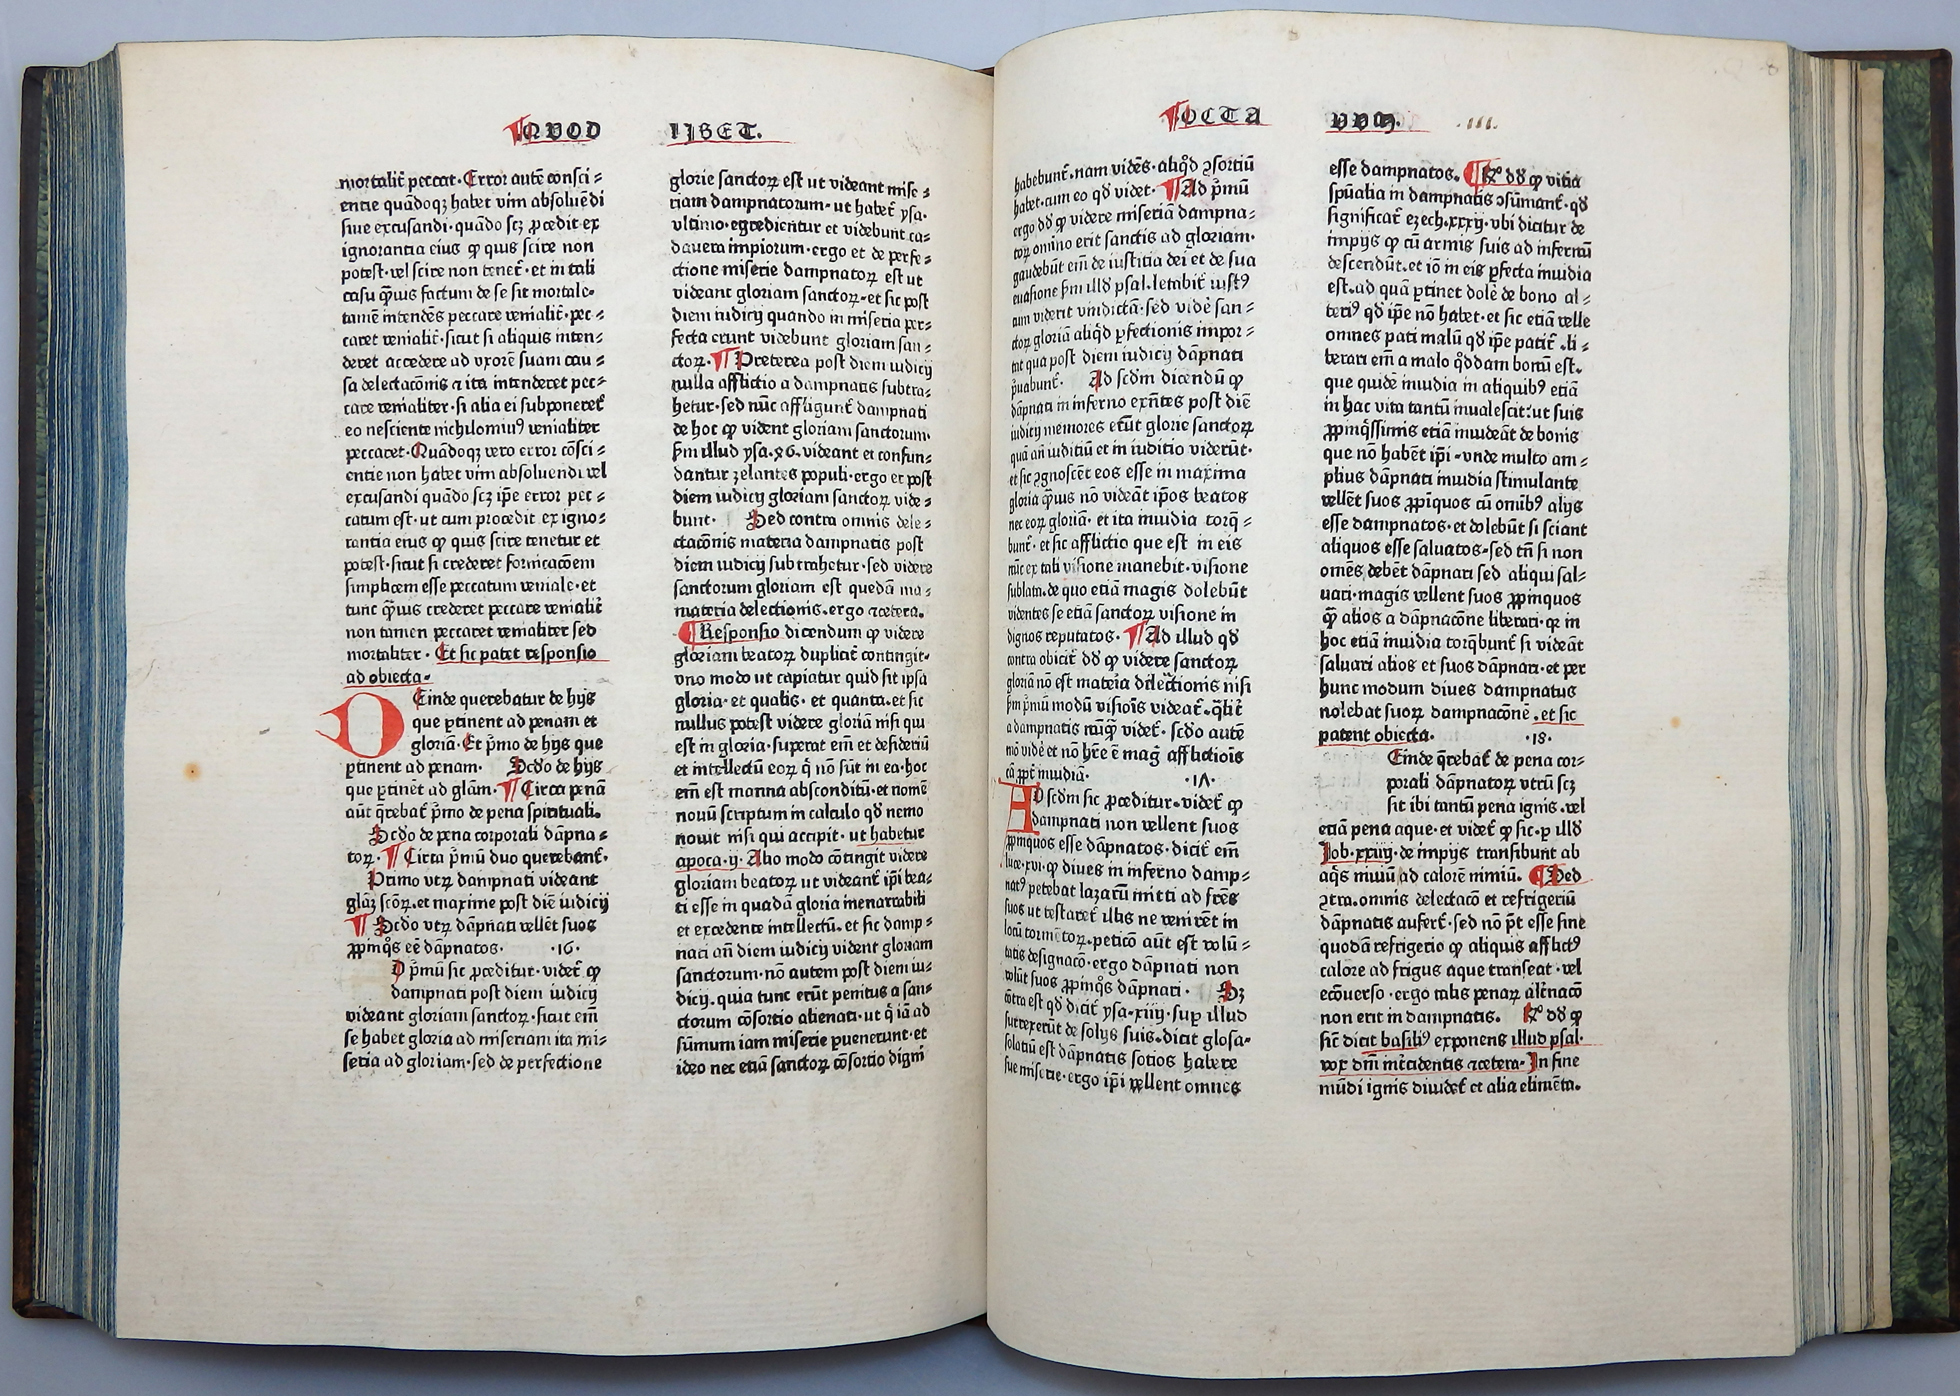 QVOD
LIBET.
mortalit̄ peccat· Error autē consci⸗
entie quādoqꝫ habet vim absoluēdi
siue excusandi· quādo scꝫ ꝓcedit ex
ignorantia eius ꝙ quis scire non
potest· vel scire non tenet̄· et in tali
casu q̄uis factum de se sit mortale·
tamē intendēs peccare venialit̄· pec⸗
caret venialit̄· sicut si aliquis inten⸗
deret accedere ad vxorē suam cau⸗
sa delectacōnis ⁊ ita intenderet pec⸗
care venialiter· si alia ei subponeret̄
eo nesciente nichilominꝰ venialiter
peccaret· Quādoqꝫ vero error cōsci⸗
entie non habet vim absoluendi vel
excusandi quādo scꝫ ip̄e error pec⸗
catum est· ut cum procedit ex igno⸗
rantia eius ꝙ quis scire tenetur et
potest· sicut si crederet fornicacōem
simplicem esse peccatum veniale· et
tunc q̄uis crederet peccare venialit̄
non tamen peccaret venialiter sed
mortaliter· Et sic patet responsio
ad obiecta·
DEinde querebatur de hijs
que ꝑtinent ad penam et
gloriā· Et p̄mo de hijs que
ꝑtinent ad penam· Scd̄o de hijs
que ꝑtinet ad glām· ¶ Circa penā
aūt q̄rebat̄ p̄mo de pena spirituali·
Scd̄o de pena corporali dāpna⸗
toꝝ· ¶ Circa p̄mū duo querebant̄·
Primo vtꝝ dampnati videant
glāꝫ scōꝝ· et maxime post diē iudicij
¶ Scd̄o vtꝝ dāpnati vellēt suos
ꝓpinq̄s eē dāpnatos· ·16·
D p̄mū sic ꝓceditur· videt̄ ꝙ
dampnati post diem iudicij
videant gloriam sanctoꝝ· sicut em̄
se habet gloria ad miseriam ita mi⸗
seria ad gloriam· sed de perfectione
glorie sanctoꝝ est ut videant mise⸗
riam dampnatorum· ut habet̄ ysa·
vltimo· egredientur et videbunt ca⸗
dauera impiorum· ergo et de perfe⸗
ctione miserie dampnatoꝝ est ut
videant gloriam sanctoꝝ· et sic post
diem iudicij quando in miseria per⸗
fecta erunt videbunt gloriam san⸗
ctoꝝ· ¶ Preterea post diem iudicij
nulla afflictio a dampnatis subtra⸗
hetur· sed nūc affligunt̄ dampnati
de hoc ꝙ vident gloriam sanctorum·
ẜm illud ysa· 26· videant et confun⸗
dantur zelantes populi· ergo et post
diem iudicij gloriam sanctoꝝ vide⸗
bunt· Sed contra omnis dele⸗
ctacōnis materia dampnatis post
diem iudicij subtrahetur· sed videre
sanctorum gloriam est quedā ma⸗
materia delectionis· ergo ⁊cetera·
¶ Responsio dicendum ꝙ videre
gloriam beatoꝝ duplicit̄ contingit·
vno modo ut capiatur quid sit ipsa
gloria· et qualis· et quanta· et sic
nullus potest videre gloriā nisi qui
est in gloria· superat em̄ et desideriū
et intellectū eoꝝ q̇ nō sūt in ea· hoc
em̄ est manna absconditū· et nomē
nouū scriptum in calculo qd̄ nemo
nouit nisi qui accipit· ut habetur
apoca· ij· Alio modo cōtingit videre
gloriam beatoꝝ ut videant̄ ip̄i bea⸗
ti esse in quadā gloria inenarrabili
et excedente intellectū· et sic damp⸗
nati an̄ diem iudicij vident gloriam
sanctorum· nō autem post diem iu⸗
dicij· quia tunc erūt penitus a san⸗
ctorum cōsortio alienati· ut q̇ iā ad
sūmum iam miserie ꝑuenerunt· et
ideo nec etiā sanctoꝝ cōsortio digni
OCTA
VVM. ·III·
habebunt̄· nam vidēs· aliq̇d ↄsortiū
habet· cum eo qd̄ videt· ¶ Ad p̄mū
ergo dd̄ ꝙ videre miseriā dampna⸗
toꝝ omino erit sanctis ad gloriam·
gaudebūt em̄ de iustitia dei et de sua
euasione ẜm illd̄ psal· letabit̄ iustꝰ
cum viderit vindictā· sed vidē san⸗
ctoꝝ gloriā aliq̇d ꝑfectionis impor⸗
tat qua post diem iudicij dāpnati
p̄uabunt̄· Ad scd̄m dicendū ꝙ
dāpnati in inferno exn̄tes post diē
iudicij memores erūt glorie sanctoꝝ
quā an̄ iuditiū et in iuditio viderūt·
et sic ↄgnoscēt eos esse in maxima
gloria q̄uis nō videāt ip̄os beatos
nec eoꝝ gloriā· et ita inuidia torq̄⸗
bunt̄· et sic afflictio que est in eis
nūc ex tali visione manebit· visione
sublata· de quo etiā magis dolebūt
videntes se etiā sanctoꝝ visione in
dignos reputatos· ¶ Ad illud qd̄
contra obicit̄ dd̄ ꝙ videre sanctoꝝ
gloriā nō est mat̄ia dilectionis nisi
ẜm p̄mū modū visiōis videat̄· q̄lit̄
a dampnatis nūq̄ videt̄· scd̄o autē
mō vidē et nō hr̄e ē maḡ afflictiōis
cā ꝓpt̄ inuidiā· ·17·
AD scd̄m sic ꝓceditur· videt̄ ꝙ
dampnati non vellent suos
ꝓpinquos esse dāpnatos· dicit̄ em̄
luce· xvi· ꝙ diues in inferno damp⸗
natꝰ petebat lazarū mitti ad fr̄es
suos ut testaret̄ illis ne venirēt in
locū tormētoꝝ· peticō aūt est volū⸗
tatis designacō· ergo dāpnati non
volūt suos ꝓpinq̇s dāpnati· Sꝫ
cōtra est qd̄ dicit̄ ysa· xiiij· suꝑ illud
surrexerūt de solijs suis· dicit glosa·
solatiū est dāpnatis sotios habere
sue miserie· ergo ip̄i vellent omnes
esse dampnatos· ¶ R̄ dd̄ ꝙ vitia
spūalia in dampnatis ↄsūmant̄· qd̄
significat̄ ezech· xxxij· vbi dicitur de
impijs ꝙ cū armis suis ad infernū
descendūt· et iō in eis ꝑfecta inuidia
est· ad quā ꝑtinet dolē de bono al⸗
teriꝰ qd̄ ip̄e nō habet· et sic etiā velle
omnes pati malū qd̄ ip̄e patit̄· li⸗
berari em̄ a malo q̇ddam bonū est·
que quidē inuidia in aliquibꝰ etiā
in hac vita tantū inualescit· ut suis
ꝓpinq̇ssimis etiā inuideāt de bonis
que nō habēt ip̄i· vnde multo am⸗
plius dāpnati inuidia stimulante
vellēt suos ꝓpinquos cū om̄ibꝰ alijs
esse dampnatos· et dolebūt si sciant
aliquos esse saluatos· sed tn̄ si non
omēs debēt dāpnari sed aliqui sal⸗
uari· magis vellent suos ꝓpinquos
q̄ alios a dāpnacōne liberari· qꝛ in
hoc etiā inuidia torq̄bunt̄ si videāt
saluari alios et suos dāpnari· et per
hunc modum diues dampnatus
nolebat suoꝝ dampnacōnē· et sic
patent obiecta· ·18·
Einde q̄rebat̄ de pena cor⸗
porali dāpnatoꝝ vtrū scꝫ
sit ibi tantū pena ignis· vel
etiā pena aque· et videt̄ ꝙ sic· ꝑ illd̄
Iob· xxiiij· de impijs transibunt ab
aq̇s niuiū ad calorē nimiū· ¶ Sed
ↄtra· omnis delectacō et refrigeriū
dāpnatis aufert̄· sed nō p̄t esse sine
quodā refrigerio ꝙ aliquis afflictꝰ
calore ad frigus aque transeat· vel
ecōuerso· ergo talis penaꝝ alt̄nacō
non erit in dampnatis· R̄ dd̄ ꝙ
sic̄ dicit basiliꝰ exponens illud psal·
vox dn̄i int̄cidentis ⁊cetera· In fine
mūdi ignis diuidet̄ et alia elimēta·